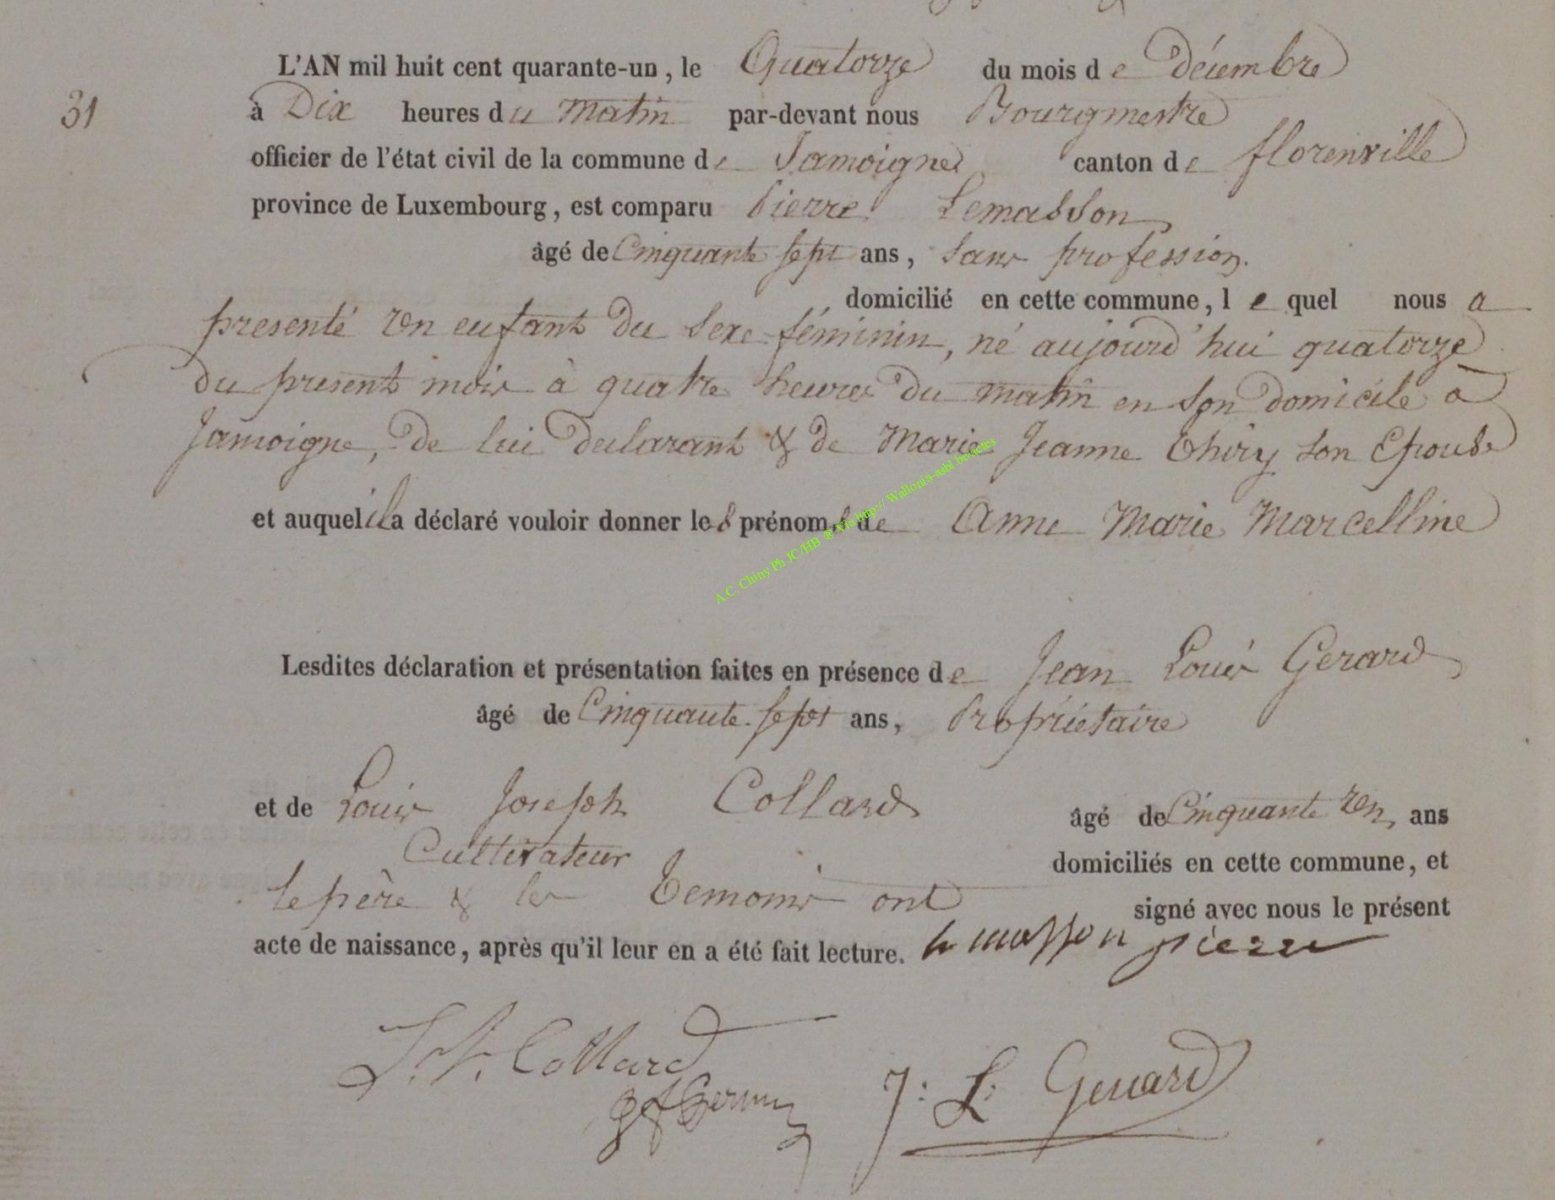 L'AN mil huit cent quarante-un, le Quatorze du mois de décembre
31
à Dix heures du matin par-devant nous Bourgmestre
officier de l'état civil de la commune de Jamoigne canton de florenville
province de Luxembourg, est comparu Pierre Lemasson
âgé de Cinquante sept ans, sans profession.
domicilié en cette commune, lequel nous a
presenté un enfant du sexe féminin, né aujourd'hui quatorze
du present mois à quatre heures du matin en son domicile à
Jamoigne, de lui declarant & de Marie Jeanne Thiry son Epouse
et auquel il a déclaré vouloir donner les prénoms de Anne Marie Marcelline
A.C. Chiny Ph JC/HB
Lesdites déclaration et présentation faites en présence de Jean Louis Gerard
âgé de Cinquante sept ans, Propriétaire
et de Louis Joseph Collard âgé de Cinquante un ans
Cultivateur domiciliés en cette commune, et
le père & les Temoins ont signé avec nous le présent
acte de naissance, après qu'il leur en a été fait lecture. le masson pierre
Collard
J: L: Gerard